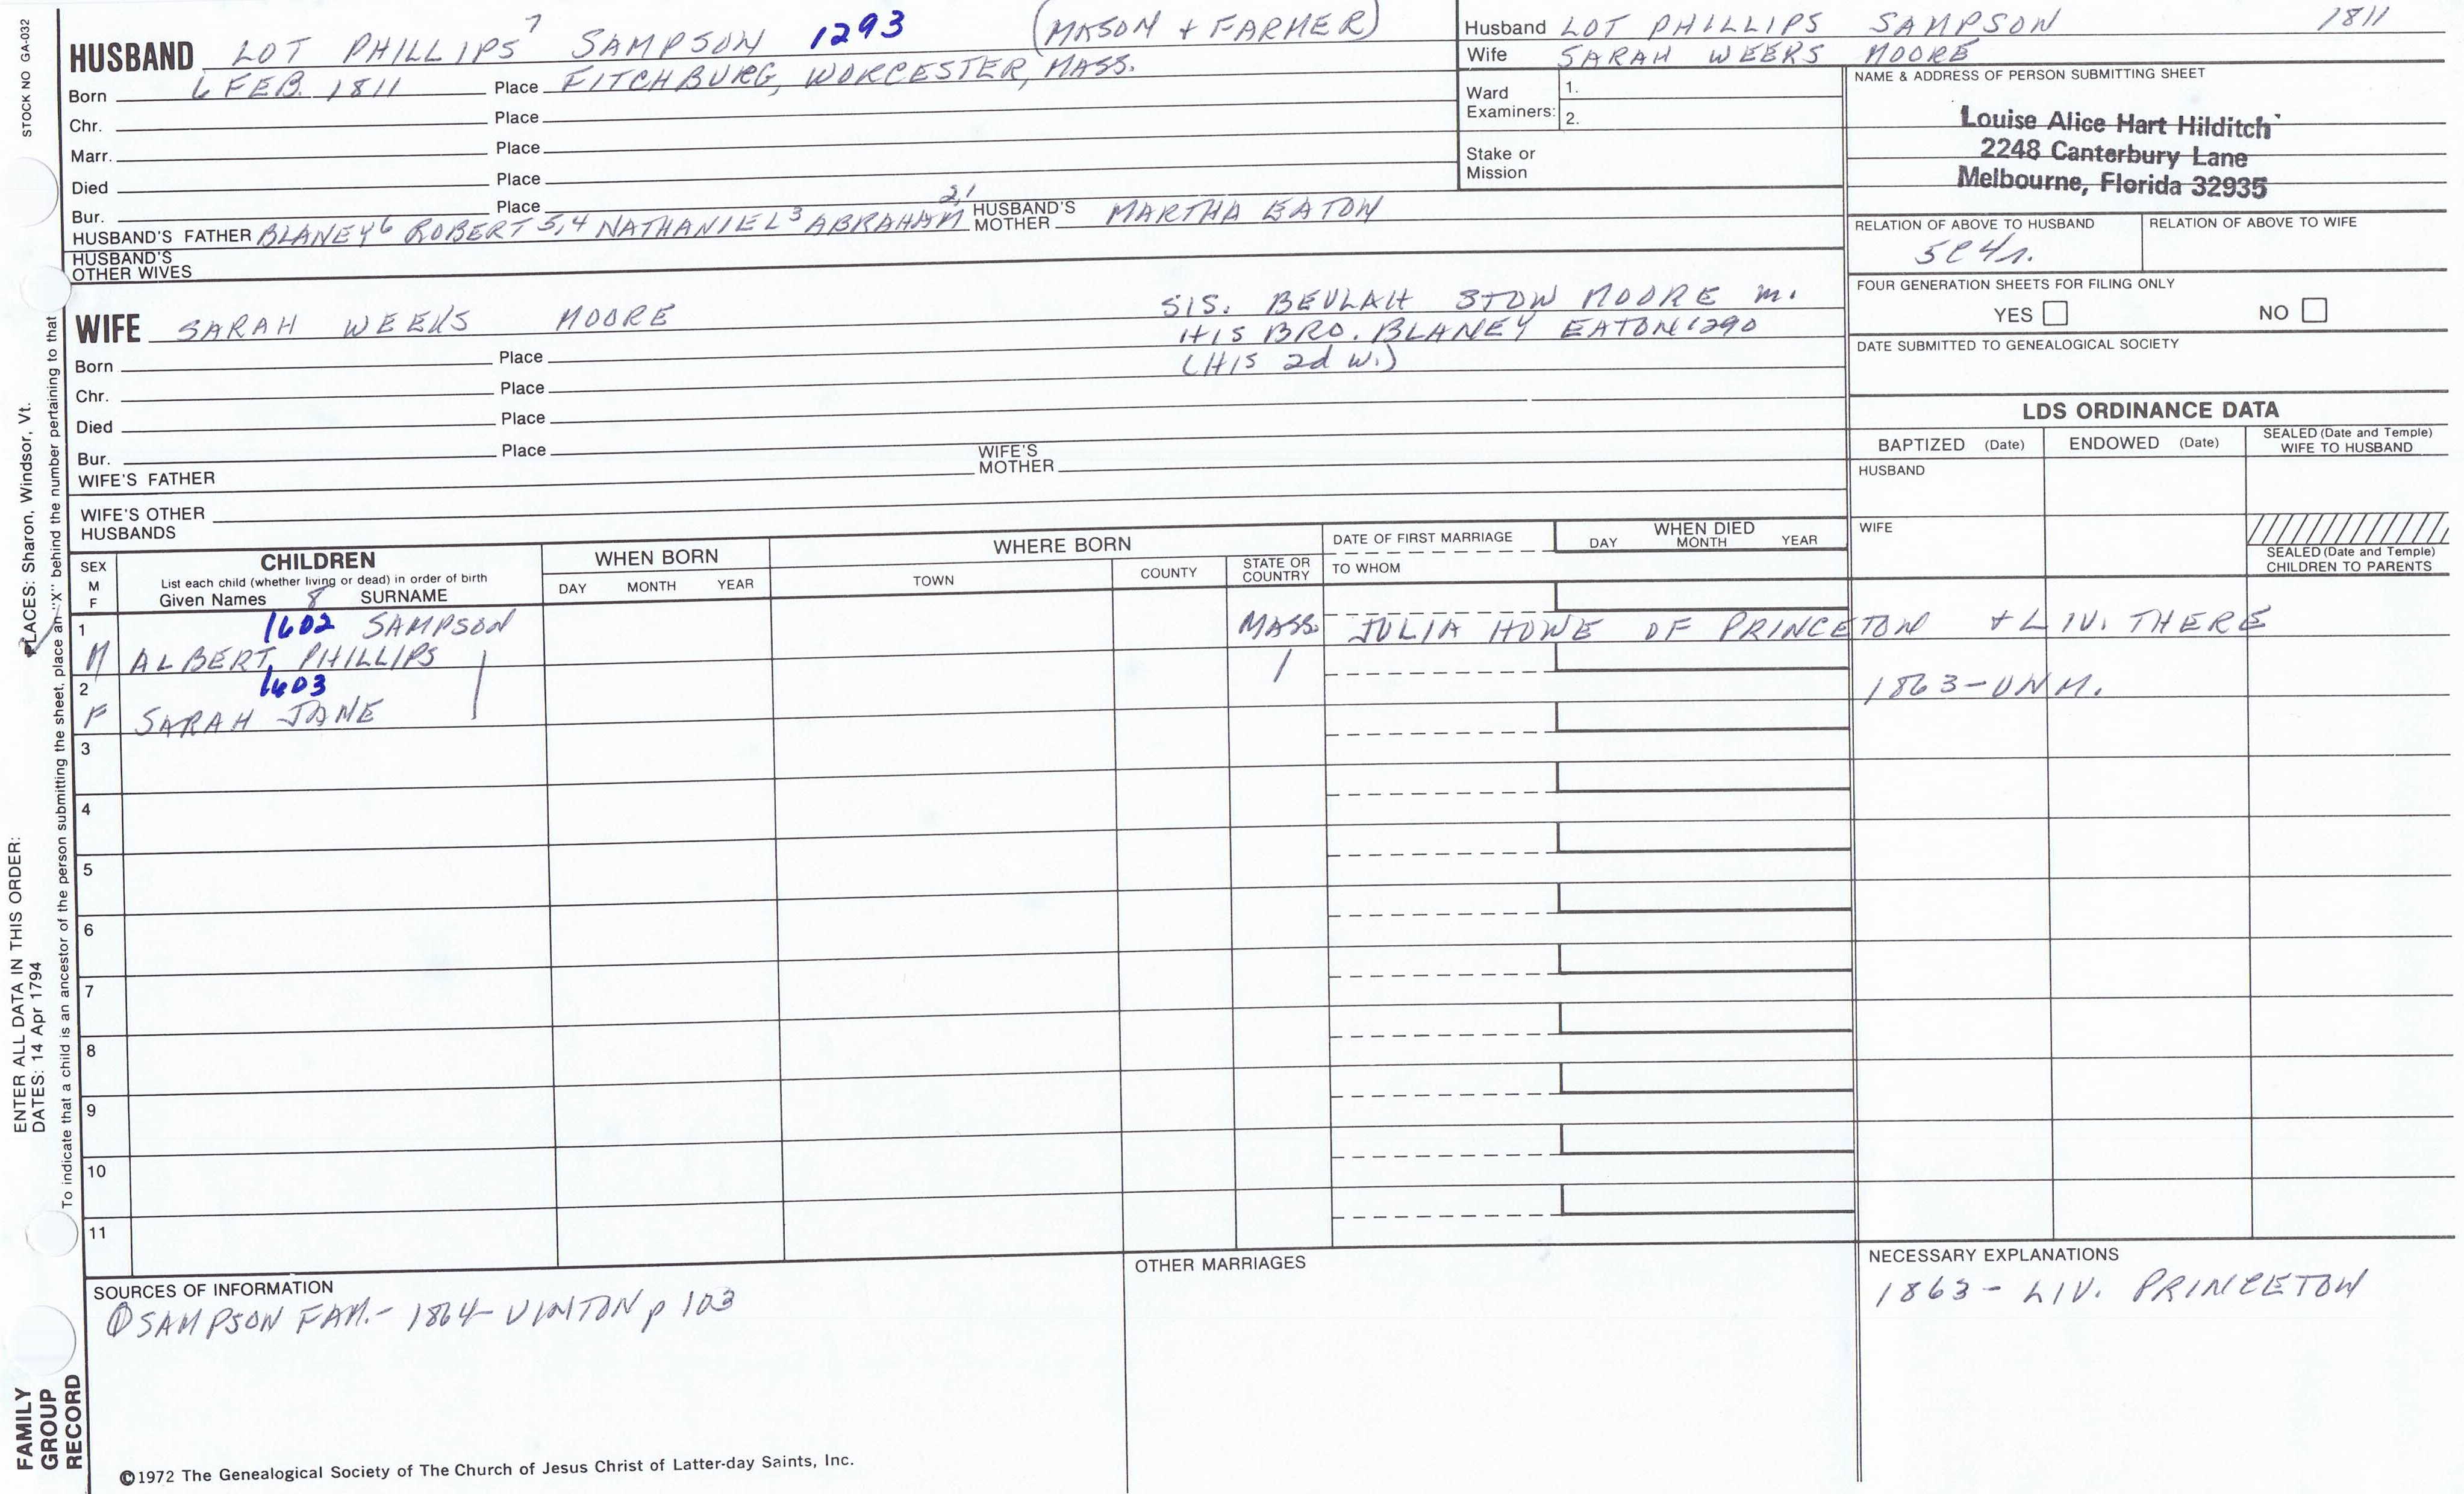 STOCK NO GA-032
HUSBAND LOT PHILLIPS 7 SAMPSON 1293 (MASON + FARMER)
Born 6 FEB. 1811 Place FITCHBURG, WORCESTER, MASS.
Chr. Place
Marr. Place
Died Place
Bur. Place
HUSBAND'S FATHER BLANEY 6 ROBERT 5,4 NATHANIEL 3 ABRAHAM 2,1 HUSBAND'S MOTHER MARTHA EATON
HUSBAND'S OTHER WIVES
Husband LOT PHILLIPS SAMPSON 1811
Wife SARAH WEEKS MOORE
Ward Examiners: 1.
2.
Stake or Mission
NAME & ADDRESS OF PERSON SUBMITTING SHEET
Louise Alice Hart Hilditch
2248 Canterbury Lane
Melbourne, Florida 32935
RELATION OF ABOVE TO HUSBAND RELATION OF ABOVE TO WIFE
5C4r.
FOUR GENERATION SHEETS FOR FILING ONLY
YES NO
DATE SUBMITTED TO GENEALOGICAL SOCIETY
WIFE SARAH WEEKS MOORE
SIS. BEULAH STOW MOORE m.
HIS BRO. BLANEY EATON 1290
(HIS 2d W.)
Born Place
Chr. Place
Died Place
Bur. Place
WIFE'S FATHER WIFE'S MOTHER
WIFE'S OTHER HUSBANDS
LDS ORDINANCE DATA
BAPTIZED (Date) ENDOWED (Date) SEALED (Date and Temple) WIFE TO HUSBAND
HUSBAND
WIFE
SEALED (Date and Temple) CHILDREN TO PARENTS
SEX M F
CHILDREN
List each child (whether living or dead) in order of birth
Given Names 8 SURNAME
WHEN BORN
DAY MONTH YEAR
WHERE BORN
TOWN COUNTY STATE OR COUNTRY
DATE OF FIRST MARRIAGE
TO WHOM
WHEN DIED
DAY MONTH YEAR
1 1602 SAMPSON MASS. JULIA HOWE OF PRINCETON + LIV. THERE
M ALBERT PHILLIPS
2 1603 1863-UNM.
F SARAH JANE
3
4
5
6
7
8
9
10
11
SOURCES OF INFORMATION
① SAMPSON FAM.- 1864- VINTON p 103
OTHER MARRIAGES
NECESSARY EXPLANATIONS
1863 - LIV. PRINCETON
©1972 The Genealogical Society of The Church of Jesus Christ of Latter-day Saints, Inc.
FAMILY GROUP RECORD
ENTER ALL DATA IN THIS ORDER:
DATES: 14 Apr 1794
PLACES: Sharon, Windsor, Vt.
To indicate that a child is an ancestor of the person submitting the sheet, place an "X" behind the number pertaining to that